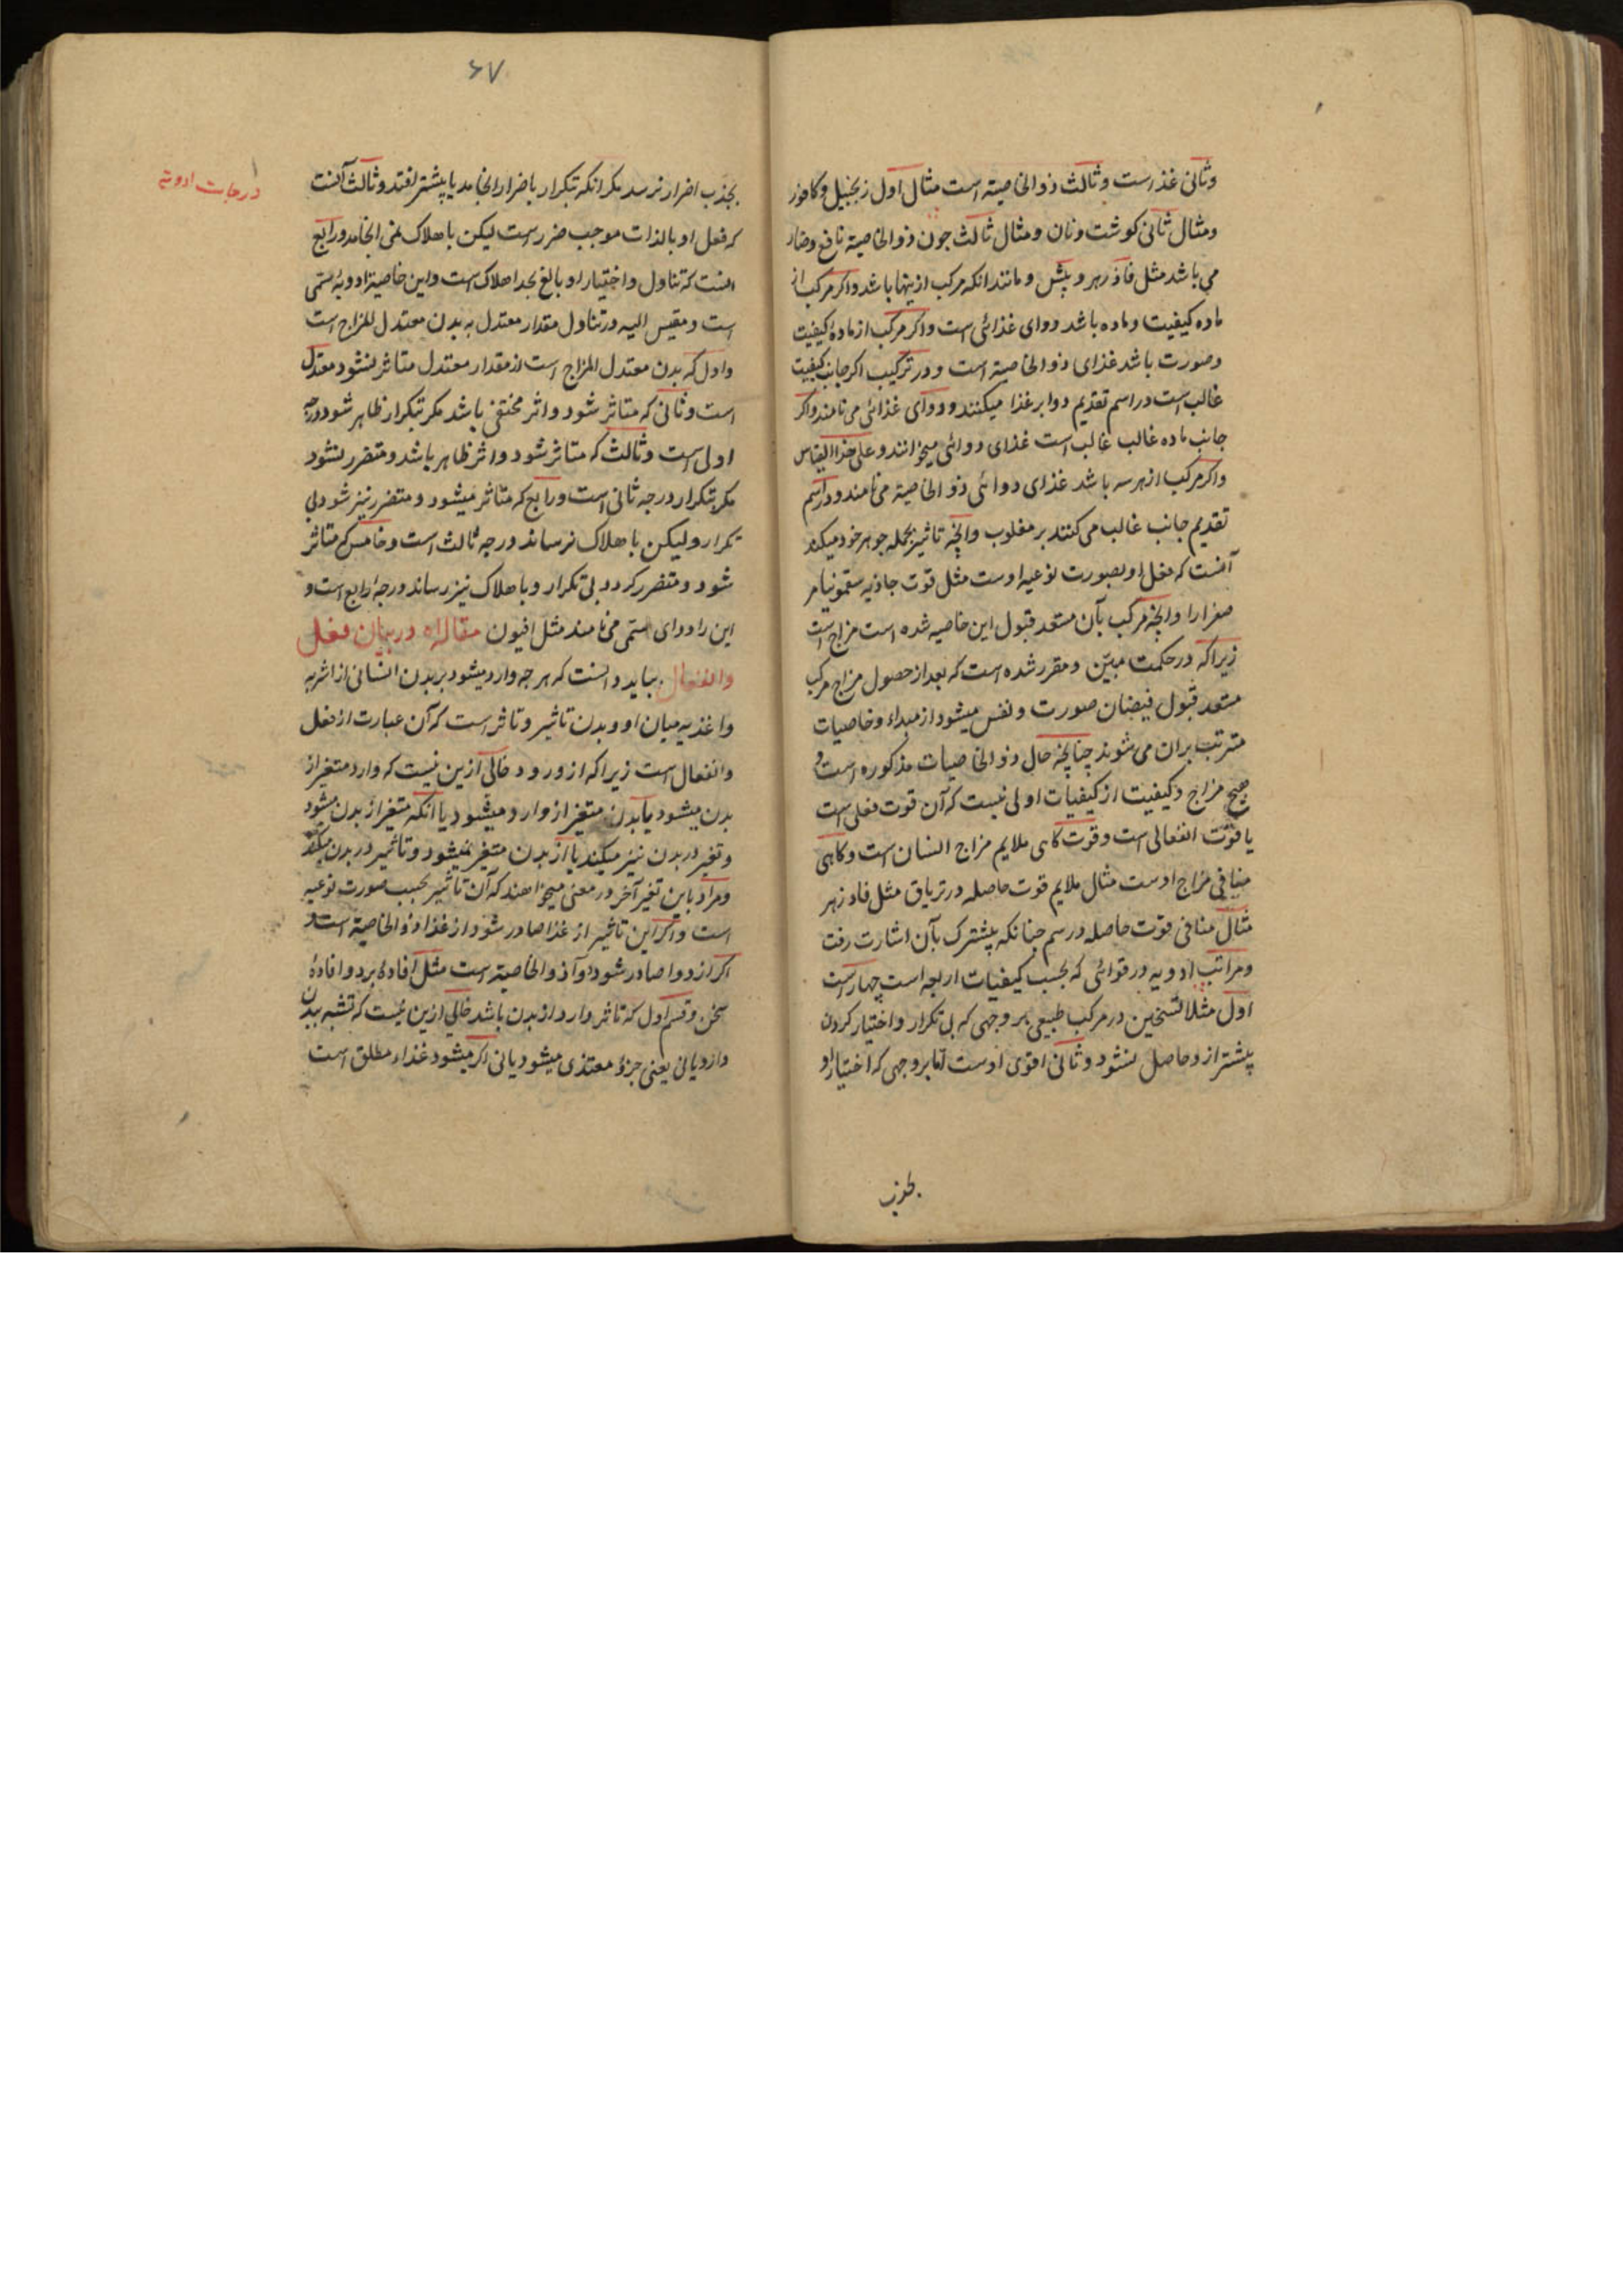 وثانی غذاست وثالث ذوالخاصیة است مثال اول زنجبیل وکافور
ومثال ثانی کوشت ونان ومثال ثالث جون ذوالخاصیة نافع وضار
می باشد مثل فاذزهر وبیش ومانند انکه مرکب ازینها باشد واکر مرکب از
ماده کیفیت وماده باشد دوای غذائی است واکر مرکب از ماده کیفیت
وصورت باشد غذای ذوالخاصیة است ودر ترکیب اکر جانب کیفیت
غالب است در اسم تقدیم دوا برغذا میکنند ودوای غذائی می نامند واکر
جانب ماده غالب غالب است غذای دوائی میخوانند وعلی هذا القیاس
واکر مرکب از هر سه باشد غذای دوائی ذو الخاصیة می نامند ودر اسم
تقدیم جانب غالب می کنند بر مغلوب وانجه تاثیر بجمله جوهر خود میکند
آنست که فعل او بصورت نوعیه اوست مثل قوت جاذبه سقمونیا مر
صفرا را وانجه مرکب بآن مستعد قبول این خاصیه شده است مزاج است
زیرا که در حکمت مبیّن ومقرر شده است که بعد از حصول مزاج مرکب
مستعد قبول فیضان صورت ونفس میشود از مبداء وخاصیات
مترتب بران می شوند چنانچه حال ذو الخاصیات مذکوره است و
هیج مزاج وکیفیت از کیفیات اولی نیست که آن قوت فعلی است
یا قوت انفعالی است وقوت کاهی ملایم مزاج انسان است وکاهی
منافی مزاج اوست مثال ملایم قوت حاصله در تریاق مثل فادزهر
مثال منافی قوت حاصله در سم جنانکه پیشترک بآن اشارت رفت
ومراتب ادویه در قوائی که بحسب کیفیات اربعه است چهار است
اول مثلا تسخین در مرکب طبیعی بر وجهی که بی تکرار واختیار کردن
پیشتر ازو حاصل نشود وثانی اقوی اوست اما بروجهی که اختیار او
بجذب
۶۷
درجات ادویه
بجذب اضرار نرسد مکر انکه تکرار باضرار انجامد یا پیشتر افتد وثالث آنست
که فعل او بالذات موجب ضرر است لیکن باهلاک نمی انجامد ورابع
انست که تناول واختیار او بالغ بحد اهلاک است واین خاصیة ادویهٔ سمّی
است ومقیس الیه در تناول مقدار معتدل به بدن معتدل المزاج است
واول که بدن معتدل المزاج است از مقدار معتدل متاثر نشود معتدل
است وثانی که متاثر شود واثر مختفی باشد مکر تبکرار ظاهر شود درجه
اولی است وثالث که متاثر شود واثر ظاهر باشد ومتضرر نشود
مکر تبکرار درجه ثانی است ورابع که متاثر میشود ومتضرر نیز شود بی
تکرار ولیکن باهلاک نرساند درجه ثالث است وخامس که متاثر
شود ومتضرر کردد بی تکرار وباهلاک نیز رساند درجهٔ رابع است و
این را دوای سمّی می نامند مثل افیون مقاله در بیان فعل
وانفعال بباید دانست که هر جه وارد میشود بر بدن انسانی از اشربه
واغذیه میان او وبدن تاثیر وتاثر است که آن عبارت از فعل
وانفعال است زیرا که از ورود خالی ازین نیست که وارد متغیر از
بدن میشود یا بدن متغیر از وارد میشود یا انکه متغیر از بدن میشود
وتغیر در بدن نیز میکند یا از بدن متغیر نمیشود وتاثیر در بدن میکند
ومراد باین تغیر آخر در معنی میخواهند که آن تاثیر بحسب صورت نوعیه
است واکر این تاثیر از غذا صادر شود از غذا ذو الخاصیة است و
اکر از دوا صادر شود دوآ ذو الخاصیة است مثل افادهٔ برد وافادهٔ
سخن وقسم اول که تاثر وارد از بدن باشد خالی ازین نیست که تشبه ببدن
دارد یا نی یعنی جزؤ مغتذی میشود یا نی اکر میشود غذاء مطلق است